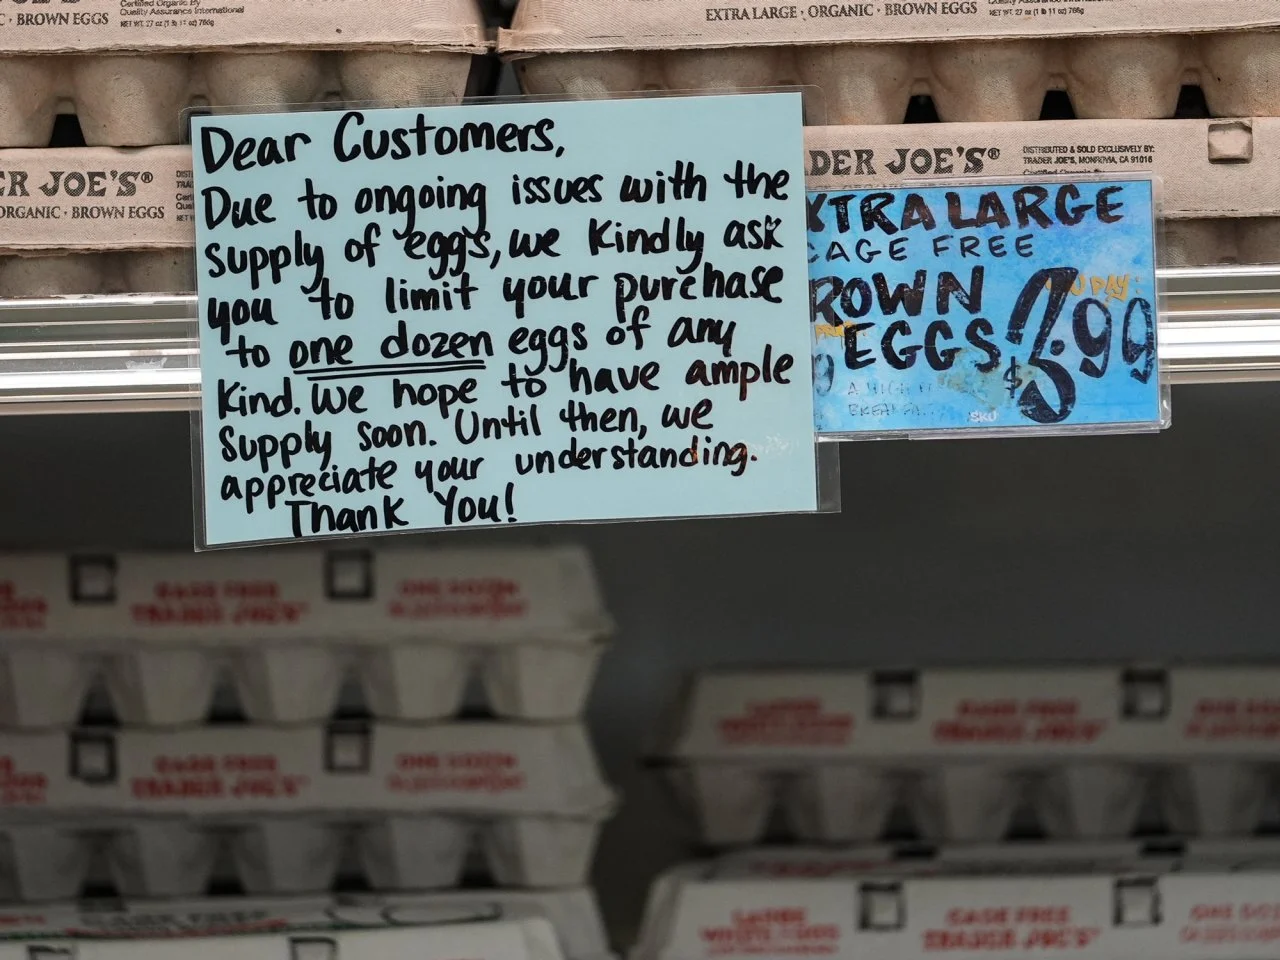 Certified Organic By
Quality Assurance International
· BROWN EGGS
NET WT. 27 oz (1 lb 11 oz) 765g
EXTRA LARGE · ORGANIC · BROWN EGGS
Quality Assurance International
NET WT. 27 oz (1 lb 11 oz) 765g
Dear Customers,
Due to ongoing issues with the
supply of eggs, we kindly ask
you to limit your purchase
to one dozen eggs of any
kind. We hope to have ample
supply soon. Until then, we
appreciate your understanding.
Thank You!
R JOE'S®
ORGANIC · BROWN EGGS
DER JOE'S®
DISTRIBUTED & SOLD EXCLUSIVELY BY:
TRADER JOE'S, MONROVIA, CA 91016
XTRA LARGE
CAGE FREE
ROWN
EGGS
$ .99
SKU
CAGE FREE
TRADER JOE'S
ONE DOZEN
CAGE FREE
TRADER JOE'S
ONE DOZEN
CAGE FREE
TRADER JOE'S
LARGE
CAGE FREE
TRADER JOE'S